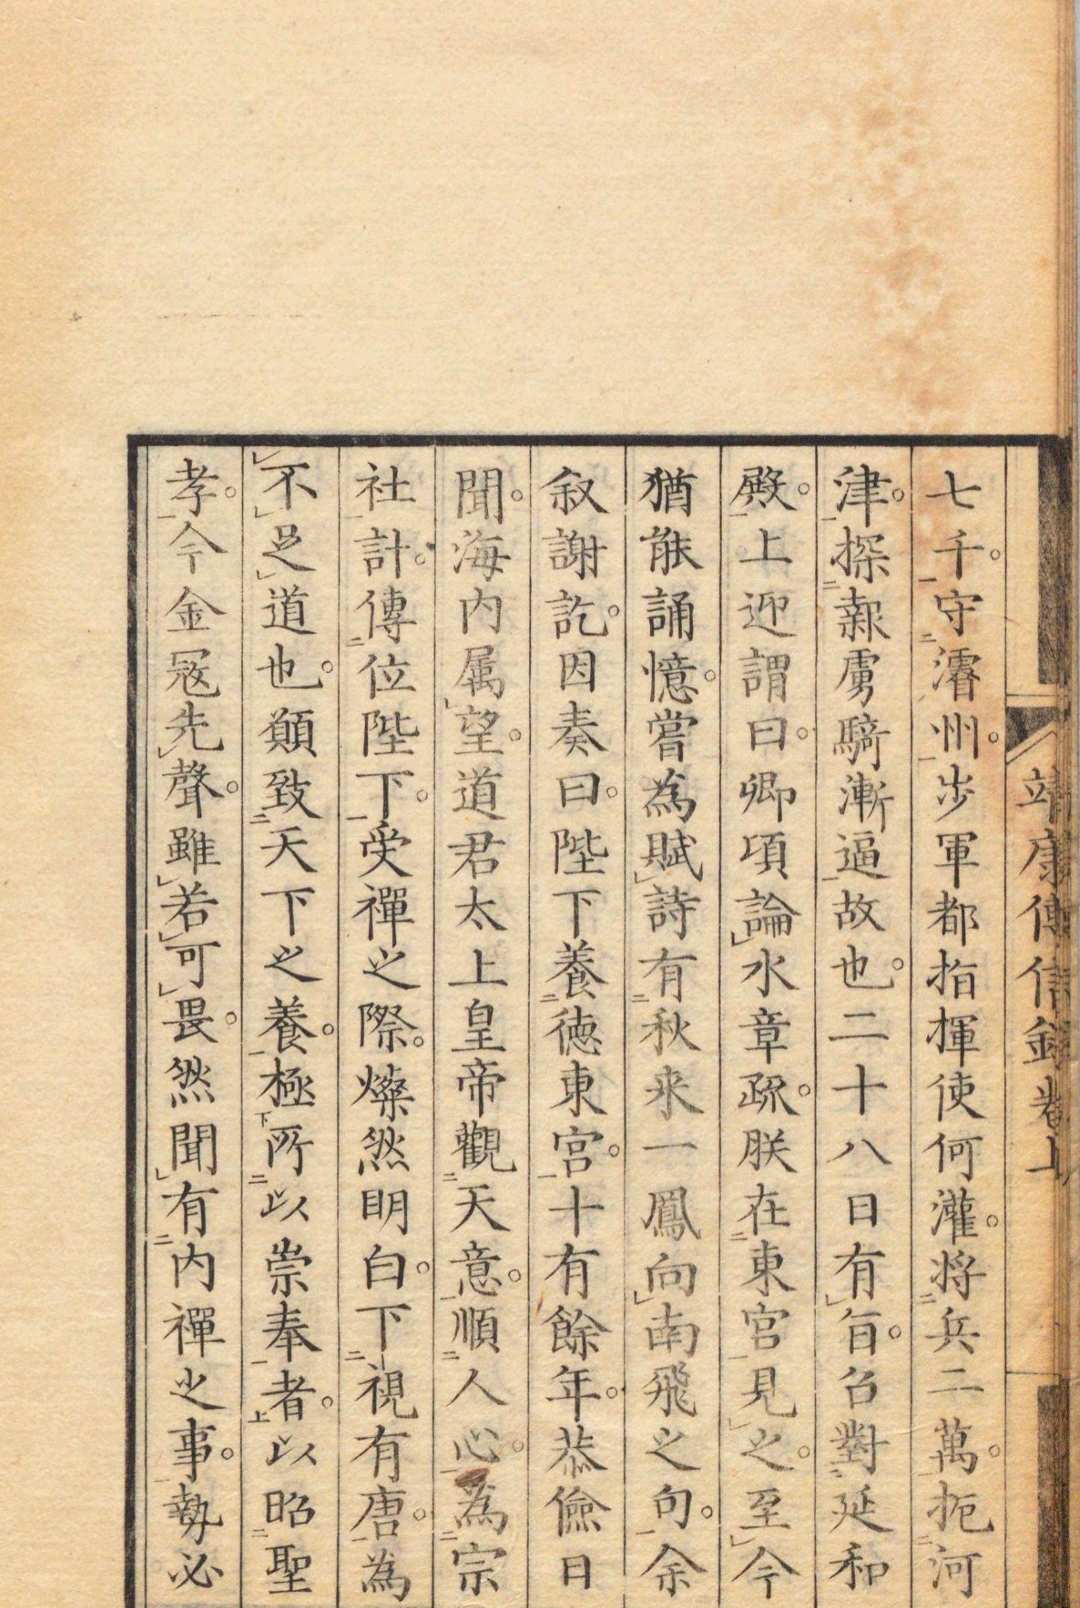 靖康傳信錄卷上
七千守濬州步軍都指揮使何灌将兵二萬扼河
津探報虜騎漸逼故也二十八日有旨召對延和
殿上迎謂曰卿頃論水章疏朕在東宮見之至今
猶能誦憶嘗為賦詩有秋来一鳳向南飛之句余
叙謝訖因奏曰陛下養德東宮十有餘年恭儉日
聞海内属望道君太上皇帝觀天意順人心為宗
社計傳位陛下受禪之際燦然明白下視有唐為
不足道也願致天下之養極所以崇奉者以昭聖
孝今金冦先聲雖若可畏然聞有内禪之事勢必